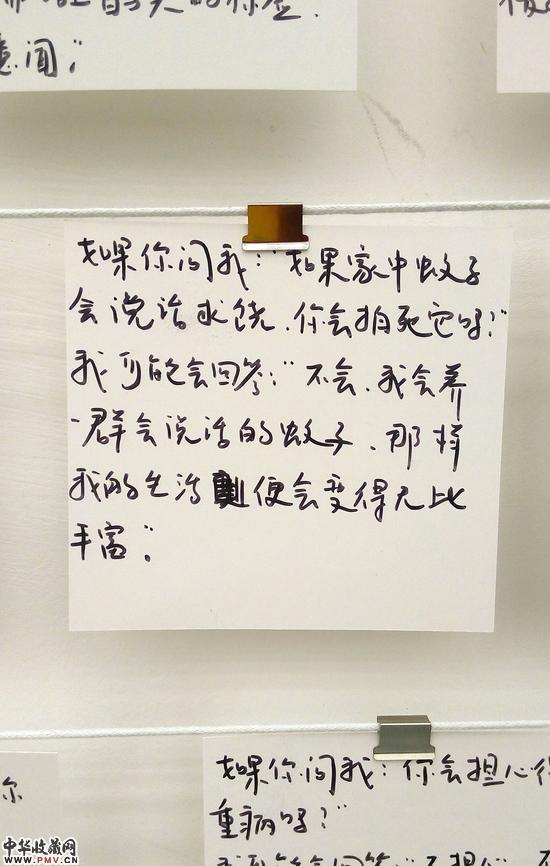 意闻。”
如果你问我：“如果家中蚊子
会说话求饶，你会拍死它吗？”
我可能会回答：“不会，我会养
一群会说话的蚊子，那样
我的生活便会变得无比
丰富。”
如果你问我：你会担心得
重病吗？”
你
中华收藏网
www.PMV.CN